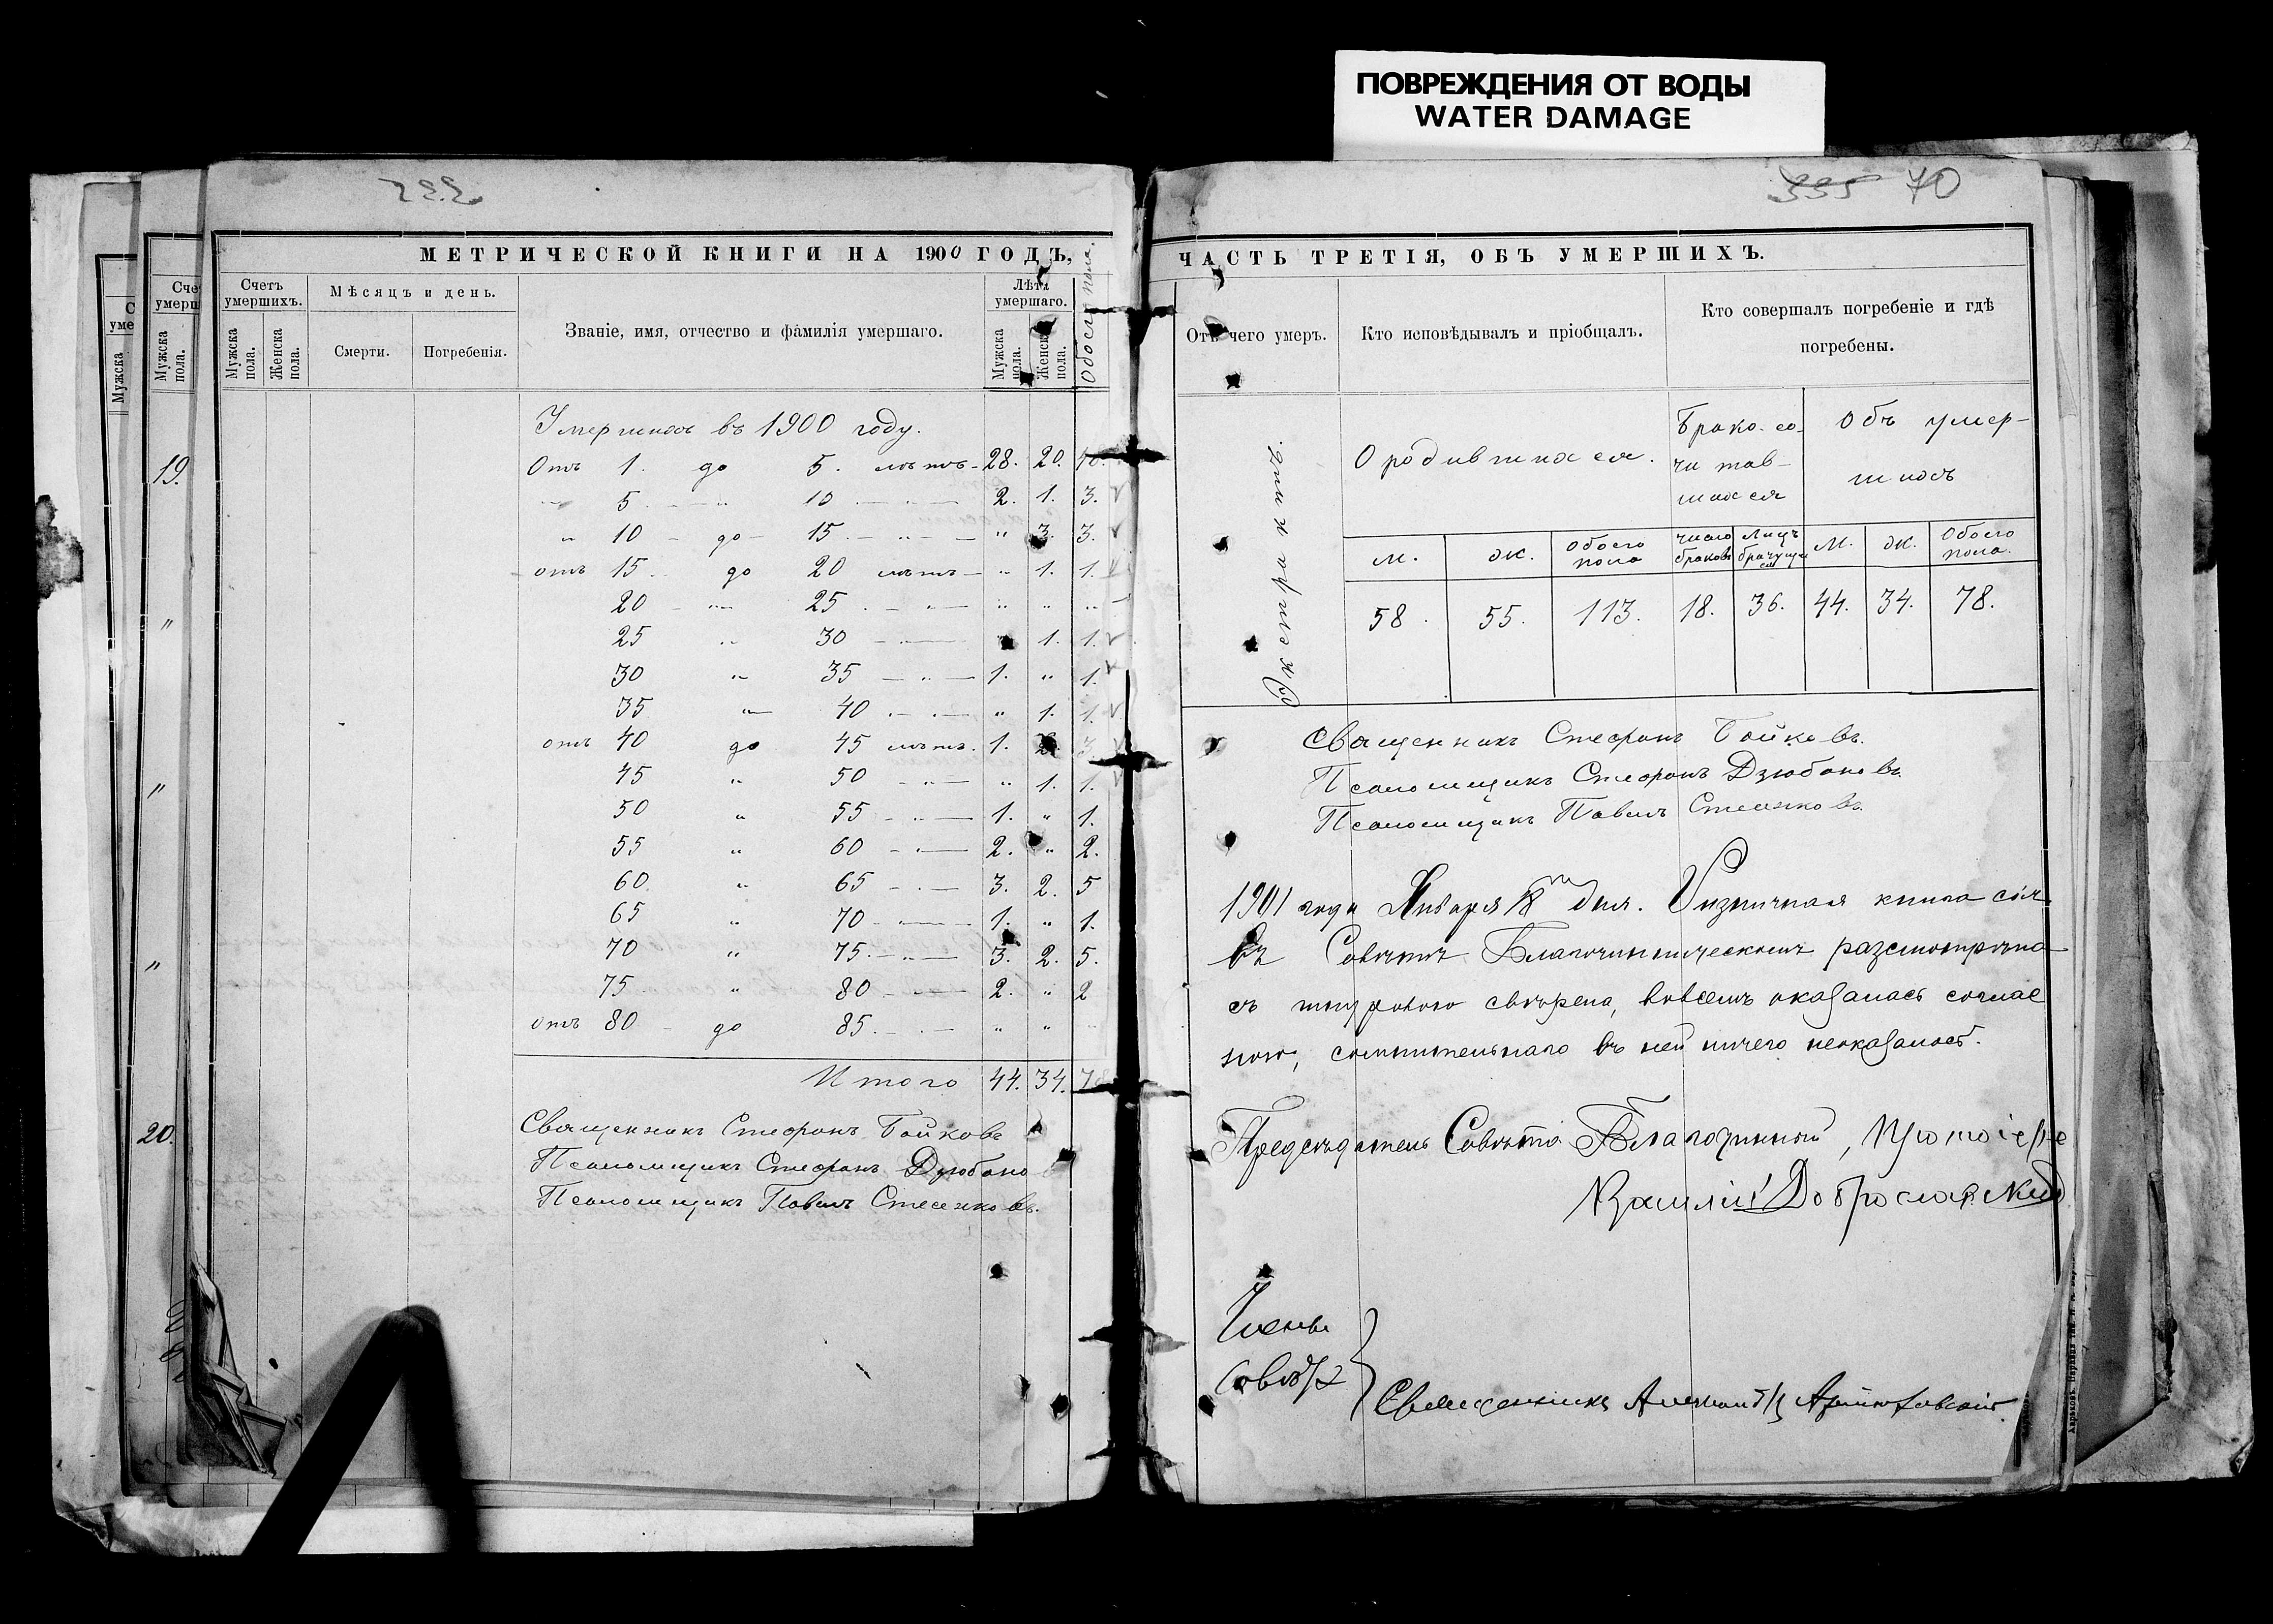 ПОВРЕЖДЕНИЯ ОТ ВОДЫ
WATER DAMAGE
МЕТРИЧЕСКОЙ КНИГИ НА 1900 ГОДЪ,
Счетъ умершихъ.
Мужска пола.
Женска пола.
Мѣсяцъ и день.
Смерти.
Погребенія.
Званіе, имя, отчество и фамилія умершаго.
Лѣта умершаго.
Мужска пола.
Женска пола.
Обоего пола.
Умершихъ въ 1900 году.
Отъ 1. до 5. лѣтъ 28. 20.
" 5 " 10 2. 1. 3.
" 10 до 15 " 3. 3.
отъ 15 до 20 лѣтъ " 1. 1.
20 " 25 " " "
25 " 30 " 1. 1.
30 " 35 1. " 1.
35 " 40 " 1. 1.
отъ 40 до 45 лѣтъ 1. 3.
45 " 50 " 1. 1.
50 " 55 1. " 1.
55 " 60 2. " 2.
60 " 65 3. 2. 5
65 " 70 1. " 1.
70 " 75 3. 2. 5.
75 " 80 2. " 2
отъ 80 до 85 " "
Итого 44. 34. 78
Священникъ Стефанъ Бойковъ
Псаломщикъ Стефанъ Дзюбано
Псаломщикъ Павелъ Стеенковъ.
335 70
ЧАСТЬ ТРЕТІЯ, ОБЪ УМЕРШИХЪ.
Отъ чего умеръ.
Кто исповѣдывалъ и пріобщалъ.
Кто совершалъ погребеніе и гдѣ погребены.
Экстрактъ.
О родившихся.
Брако-со-
чтав-
шихся
Объ умер-
шихъ
м. ж. Обоего пола число браковъ Лицъ м. ж. Обоего пола.
58. 55. 113. 18. 36. 44. 34. 78.
Священникъ Стефанъ Бойковъ.
Псаломщикъ Стефанъ Дзюбановъ.
Псаломщикъ Павелъ Стеенковъ.
1901 года Января 18 дня. книга сія
въ Совѣтѣ Благочинническомъ разсмотрѣна
съ свѣрена, вовсемъ оказалась соглас
ною, сомнительнаго въ ней ничего неоказалось.
Предсѣдатель Совѣта Благочинный, Протоіере
Василій Доброславскій
Члены
Совѣта
Священникъ
19.
"
"
"
20.